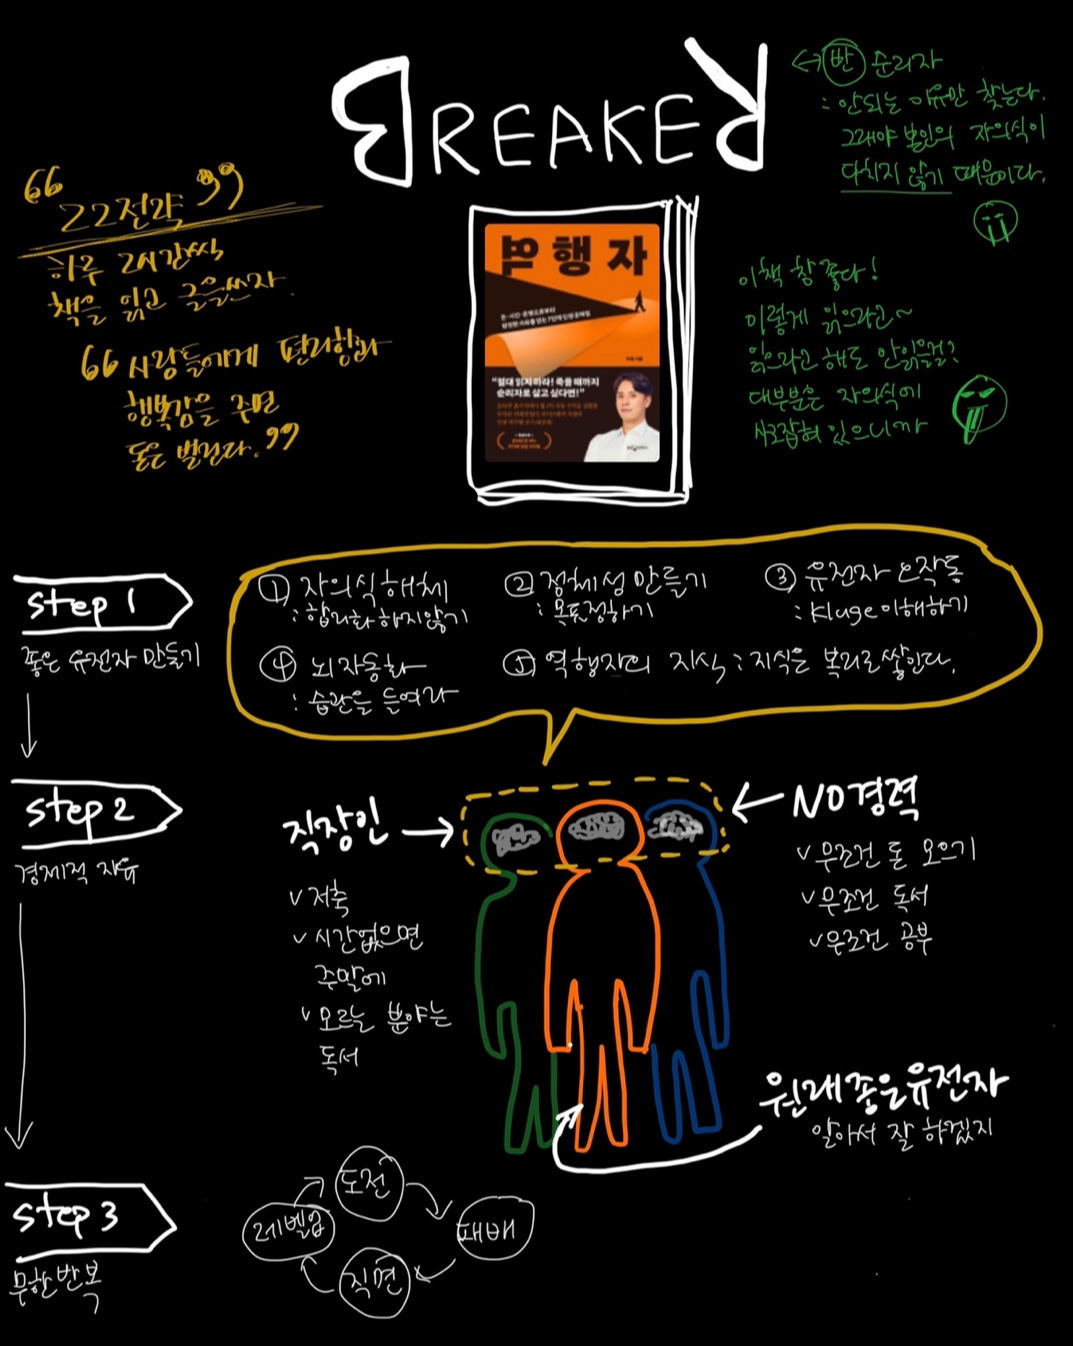 BREAKER
↔ 반 순리자
: 안되는 이유만 찾는다.
그래야 본인의 자의식이
다치지 않기 때문이다.
“22전략”
하루 2시간씩
책을 읽고 글을쓴자.
“사람들에게 편리함과
행복감을 주면
돈은 벌린다.”
역행자
돈·시간·운명으로부터
완전한 자유를 얻는 7단계 인생 공략집
"절대 읽지 마라! 죽을 때까지
순리자로 살고 싶다면!"
이책 참 좋다!
이렇게 읽으라고~
읽으라고 해도 안읽을걸?
대부분은 자의식에
사로잡혀 있으니까
step 1
좋은 유전자 만들기
① 자의식해체
: 합리화 하지않기
② 정체성 만들기
: 목표정하기
③ 유전자 오작동
: Kluge이해하기
④ 뇌 자동화
: 습관을 들여라
⑤ 역행자의 지식 : 지식은 복리로쌓인다.
step 2
경제적 자유
직장인 →
v 저축
v 시간없으면
주말에
v 모르는 분야는
독서
← NO경력
v 무조건 돈 모으기
v 무조건 독서
v 무조건 공부
원래좋은유전자
알아서 잘 하겠지
step 3
무한반복
도전
패배
직면
레벨업